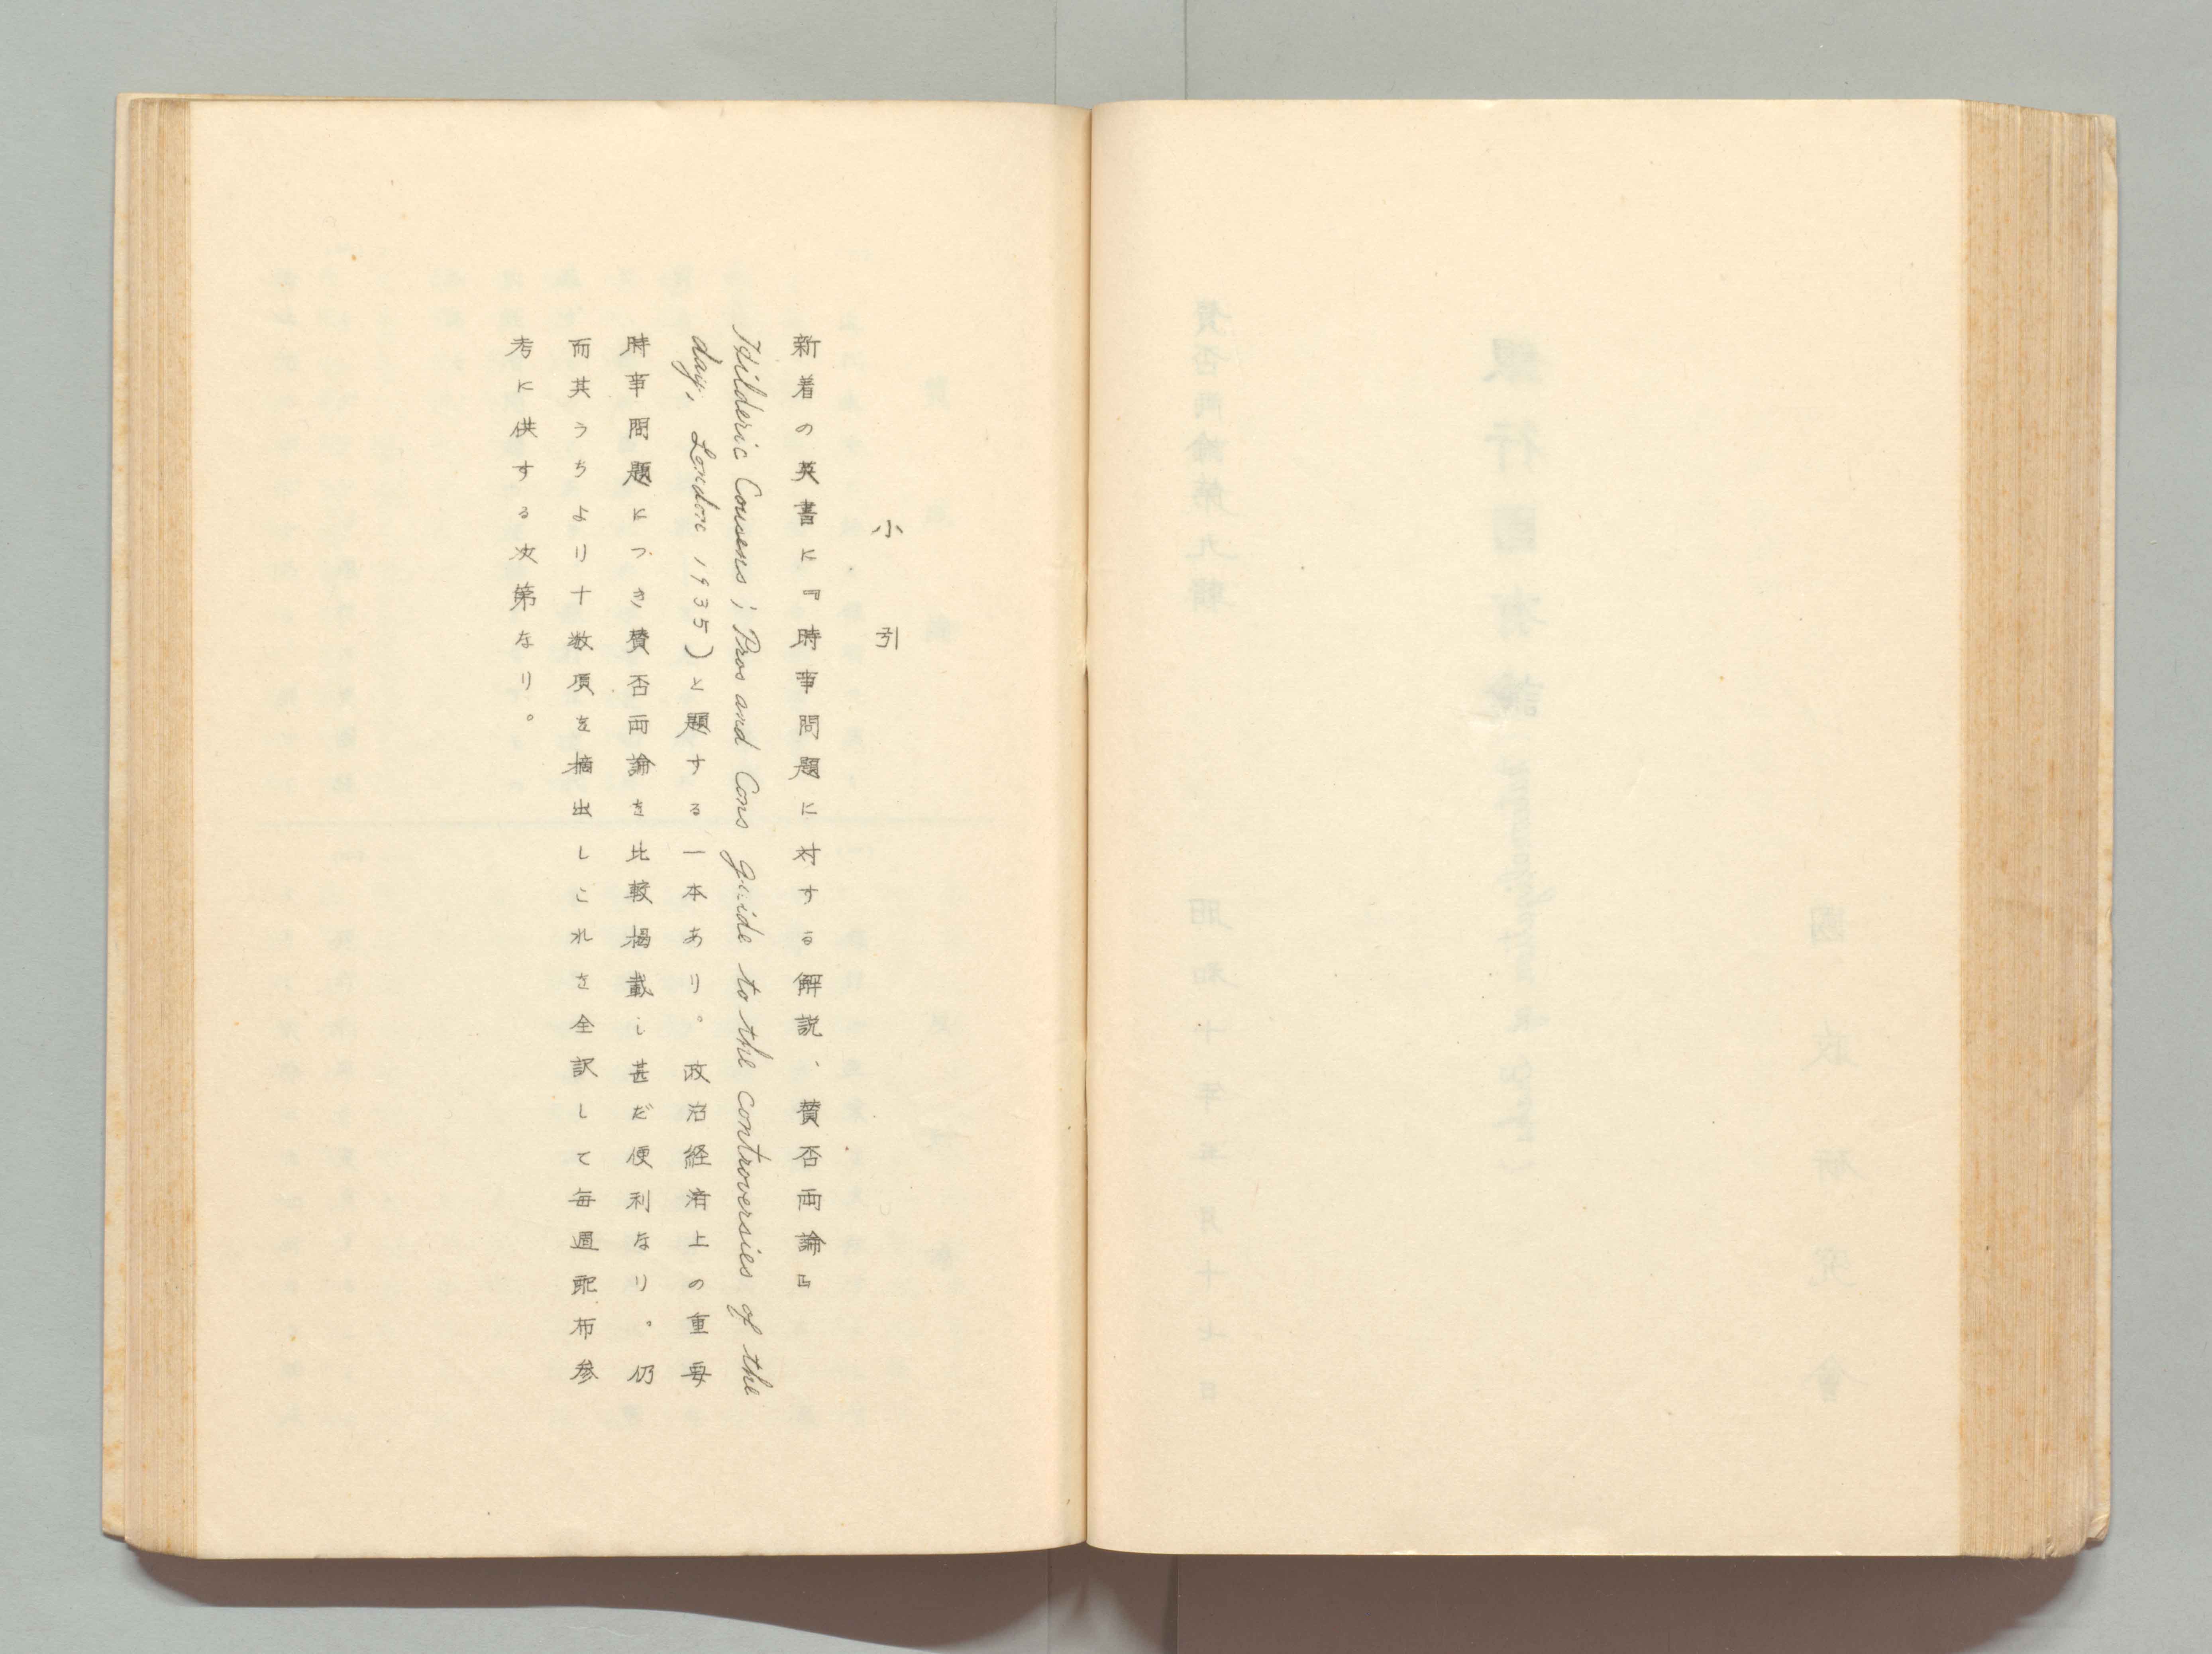 小引
新着の英書に『時事問題に対する解説、賛否両論』
Hilderic Cousens; Pros and Cons guide to the controversies of the
day, London 1935)と題する一本あり。政治経済上の重要
時事問題につき賛否両論を比較掲載し甚だ便利なり。仍
而其うちより十数項を摘出しこれを全訳して毎週配布参
考に供する次第なり。